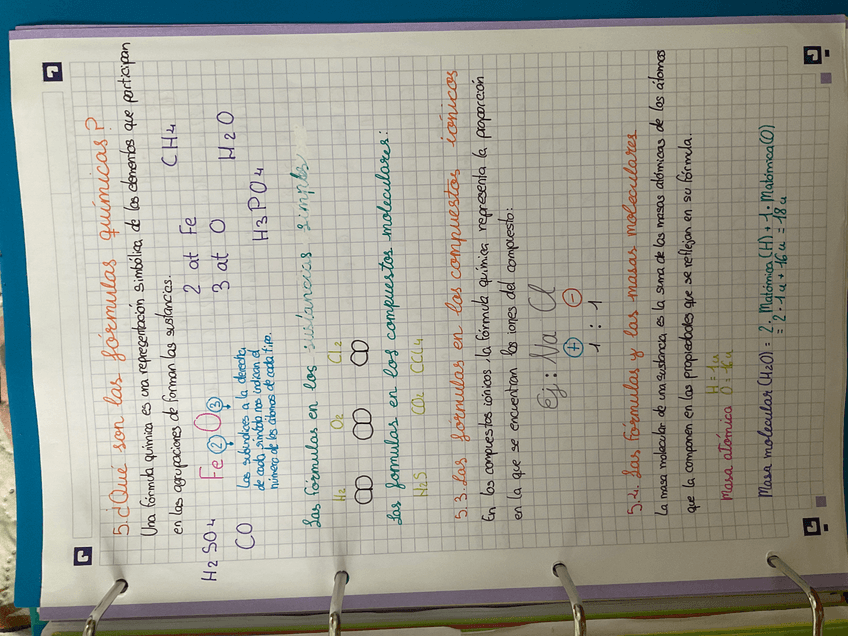 5. ¿Qué son las fórmulas químicas?
Una fórmula química es una representación simbólica de los elementos que participan
en las agrupaciones de forman las sustancias.
CH4
H2SO4 Fe2O3 2 at Fe
3 at O H2O
CO Los subíndices a la derecha
de cada símbolo nos indican el
número de los átomos de cada tipo.
H3PO4
Las fórmulas en los sustancias simples
H2 O2 Cl2
Las formulas en los compuestos moleculares:
H2S CO2 CCL4
5.3. Las fórmulas en los compuestos iónicos
En los compuestos iónicos, la fórmula química representa la proporción
en la que se encuentran los iones del compuesto:
Ej: Na Cl
+ -
1 : 1
5.4. Las fórmulas y las masas moleculares
La masa molecular de una sustancia es la suma de las masas atómicas de los átomos
que la componen en las propiedades que se reflejan en su fórmula.
Masa atómica H = 1u
O = 16u
Masa molecular (H2O) = 2 · Matómica (H) + 1 · Matómica (O)
= 2 · 1u + 16u = 18u